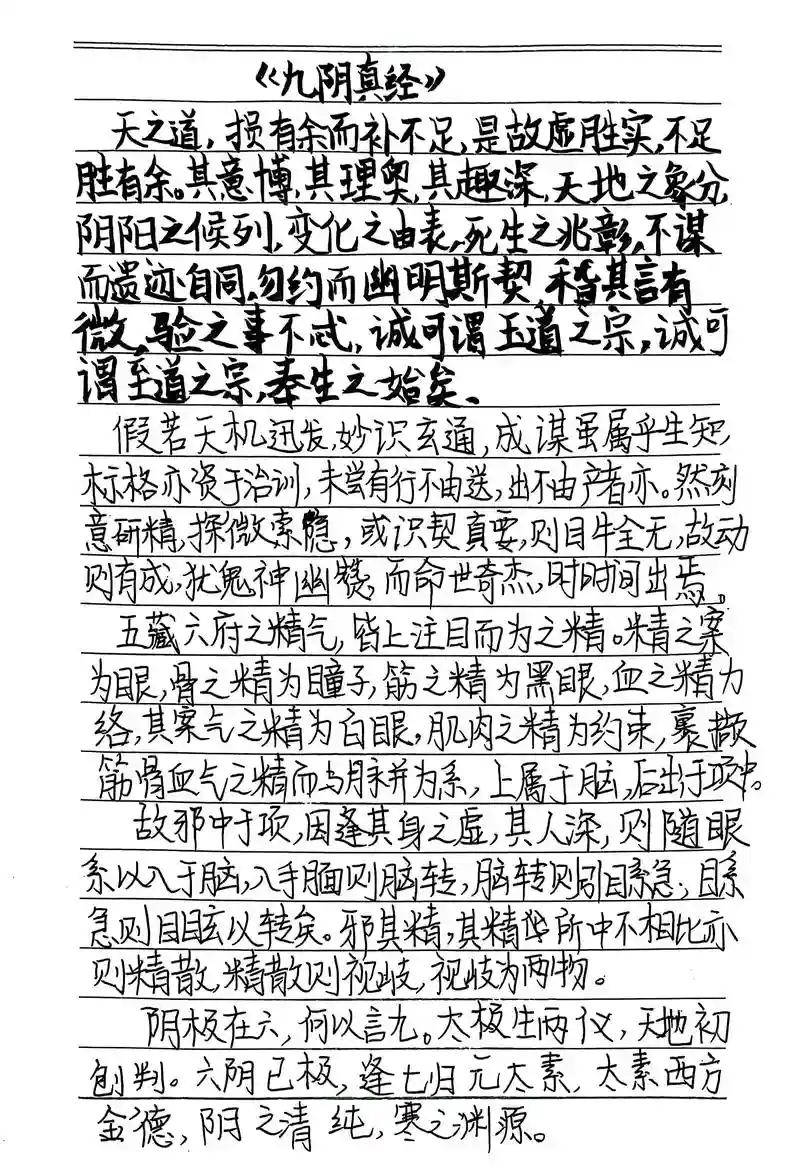 《九阴真经》
天之道，损有余而补不足，是故虚胜实，不足
胜有余。其意博，其理奥，其趣深，天地之象分，
阴阳之候列，变化之由表，死生之兆彰，不谋
而遗迹自同，勿约而幽明斯契，稽其言有
微，验之事不忒，诚可谓至道之宗，诚可
谓至道之宗，奉生之始矣、
假若天机迅发，妙识玄通，成谋虽属乎生知，
标格亦资于治训，未尝有行不由送，出不由产者亦。然刻
意研精，探微索隐，或识契真要，则目牛全无，故动
则有成，犹鬼神幽赞，而命世奇杰，时时间出焉。
五藏六府之精气，皆上注目而为之精。精之案
为眼，骨之精为瞳子，筋之精为黑眼，血之精力
络，其案气之精为白眼，肌肉之精为约束，裹撷
筋骨血气之精而与脉并为系，上属于脑，后出于项中。
故邪中于项，因逢其身之虚，其人深，则随眼
系以入于脑，入于脑则脑转，脑转则引目系急，目系
急则目眩以转矣。邪其精，其精所中不相比亦
则精散，精散则视歧，视歧为两物。
阴极在六，何以言九。太极生两仪，天地初
刨判。六阴已极，逢七归元太素，太素西方
金德，阴之清纯，寒之渊源。